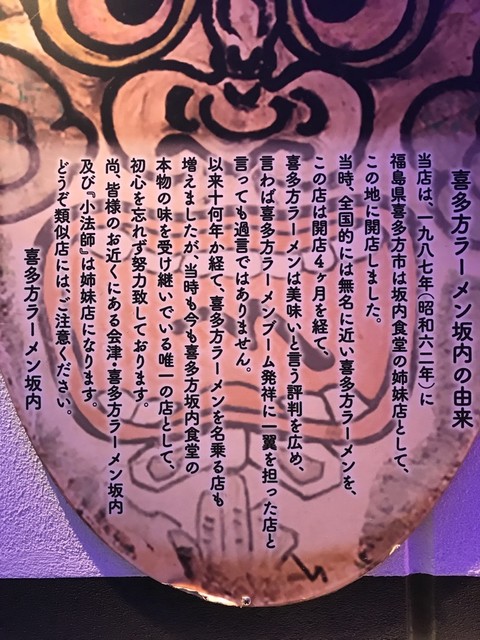 喜多方ラーメン坂内の由来
当店は、一九八七年（昭和六二年）に
福島県喜多方市は坂内食堂の姉妹店として、
この地に開店しました。
当時、全国的には無名に近い喜多方ラーメンを、
この店は開店４ヶ月を経て、
喜多方ラーメンは美味いと言う評判を広め、
言わば喜多方ラーメンブーム発祥に一翼を担った店と
言っても過言ではありません。
以来十何年か経て、喜多方ラーメンを名乗る店も
増えましたが、当時も今も喜多方坂内食堂の
本物の味を受け継いでいる唯一の店として、
初心を忘れず努力致しております。
尚、皆様のお近くにある会津・喜多方ラーメン坂内
及び『小法師』は姉妹店になります。
どうぞ類似店には、ご注意ください。
喜多方ラーメン坂内